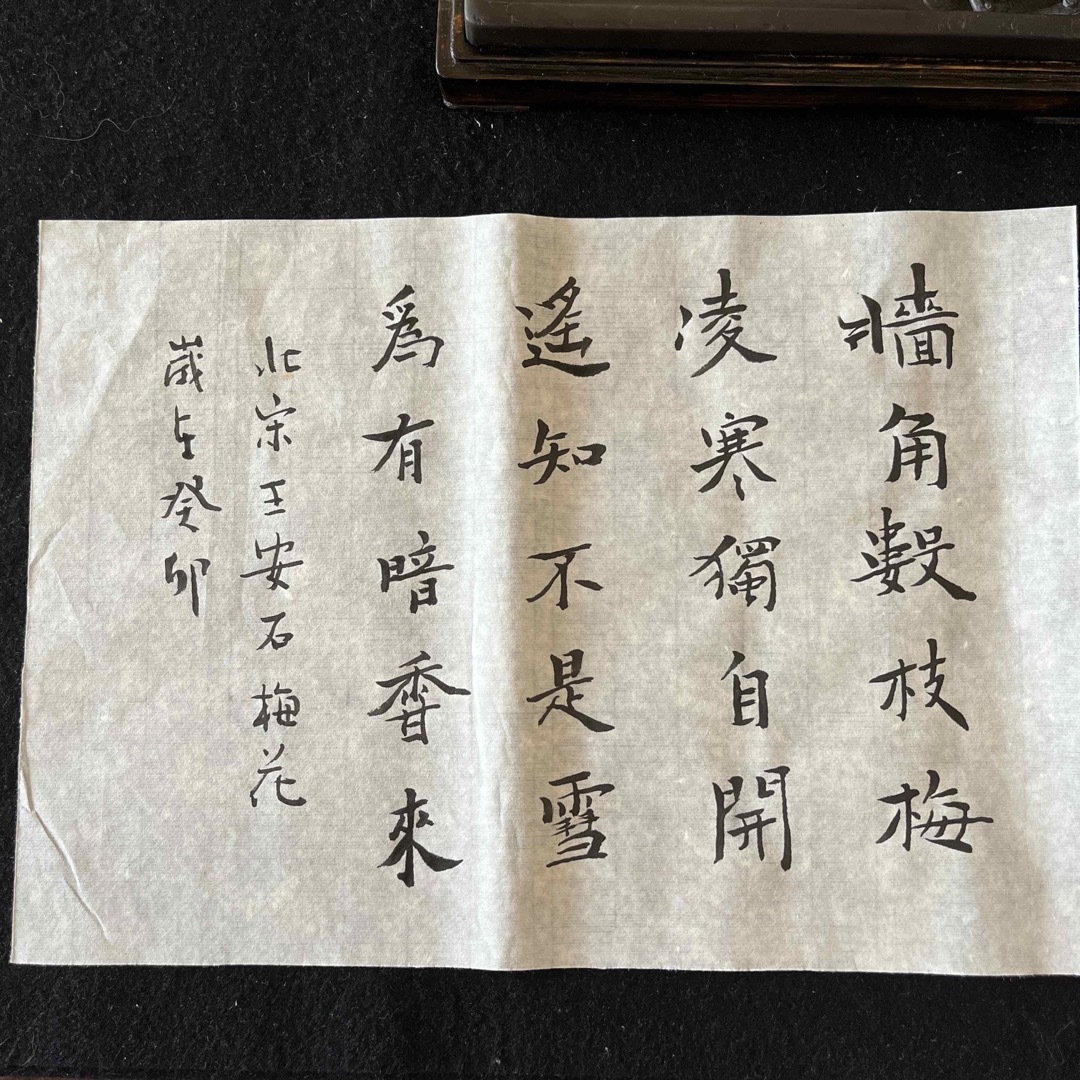 牆角數枝梅
凌寒獨自開
遙知不是雪
為有暗香來
北宋王安石梅花
歲在癸卯